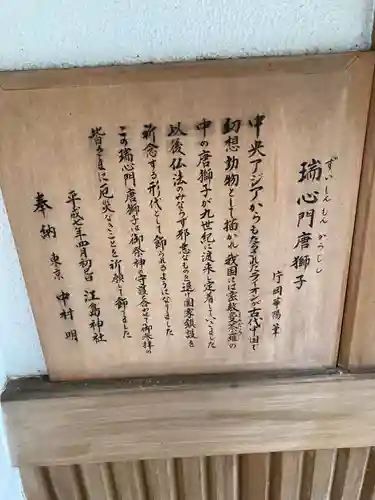 ずいしんもんからじし
瑞心門唐獅子
片岡華陽 筆
中央アジアからもたらされたライオンが古代中国で
幻想動物として描かれ 我国には密教曼荼羅の
中の唐獅子が九世紀に渡来し定着していきました
以後仏法のみならず邪悪なものを退け国家鎮護を
祈念する形代として飾られるようになりました
この瑞心門唐獅子は御祭神の守護と合わせて御参拝の
皆さまに厄災なきことを祈願して飾られました
平成七年四月初巳 江島神社
奉納 東京 中村 明